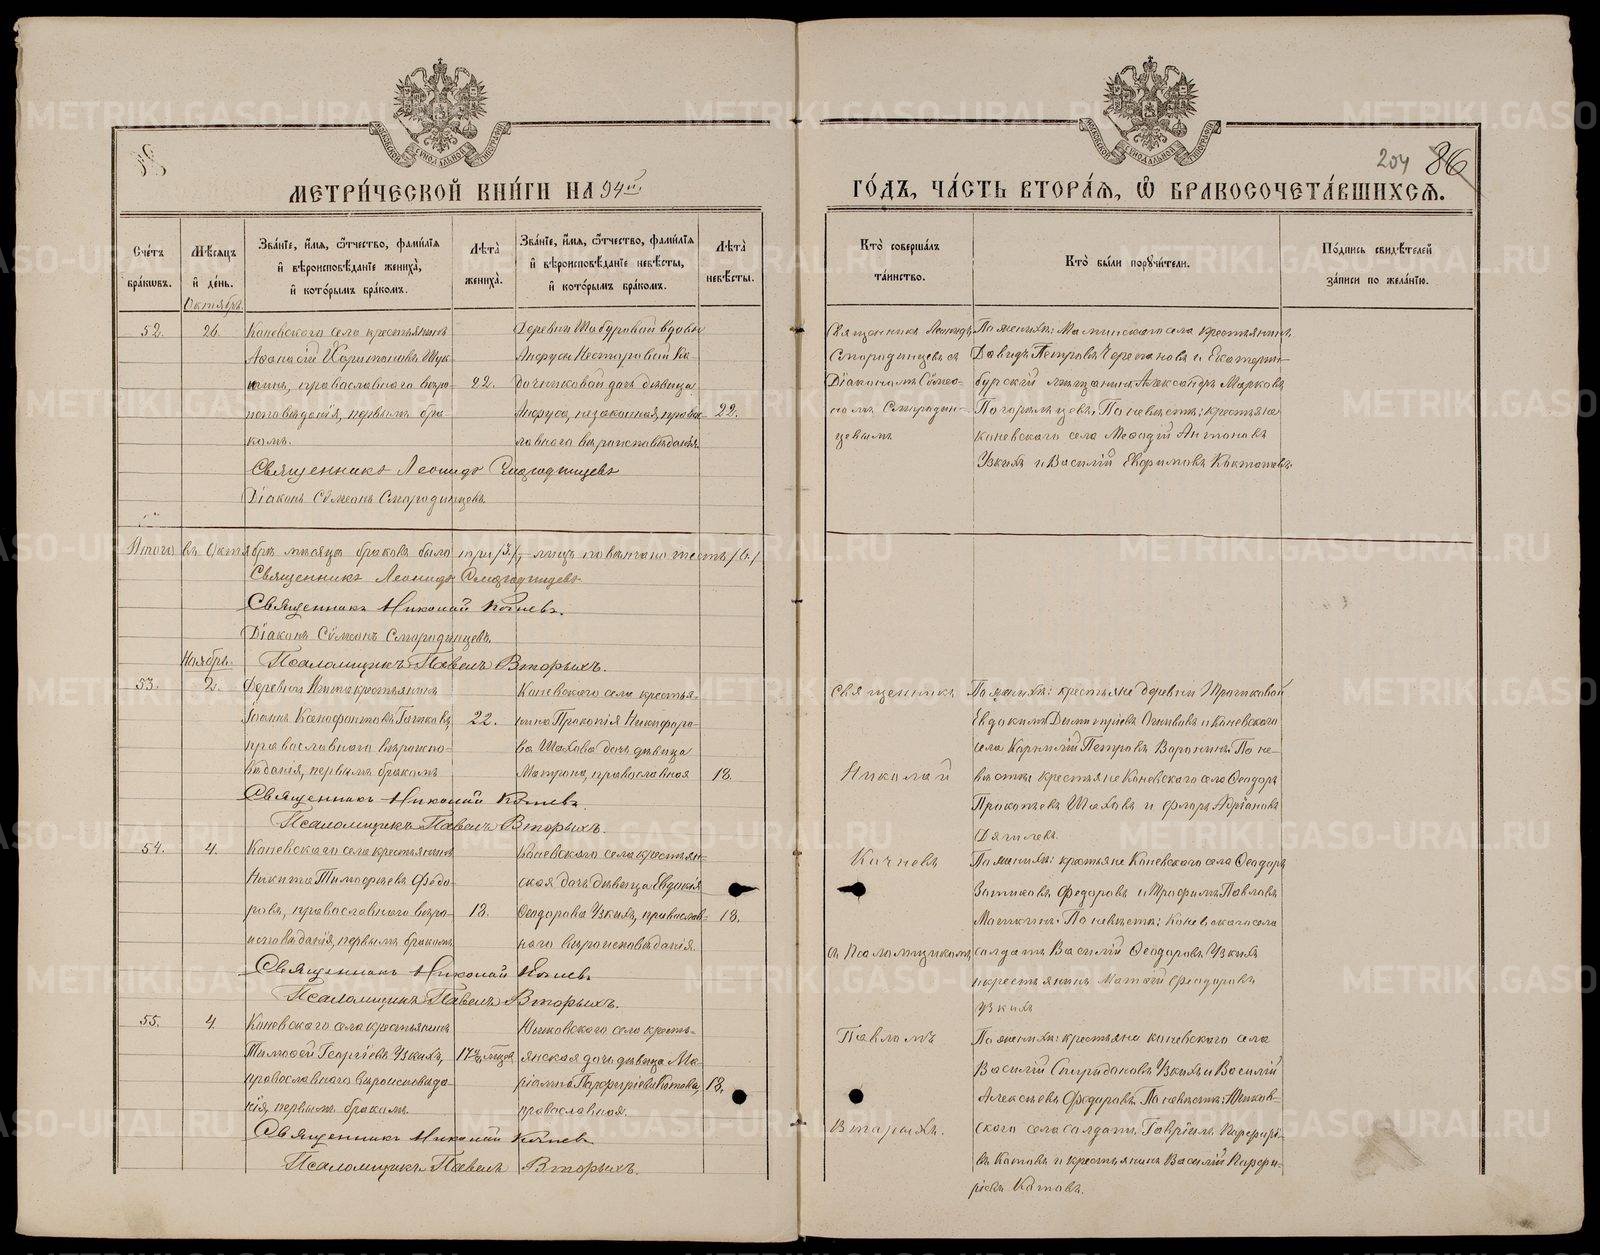 204 86
МЕТРИ́ЧЕСКОЙ КНИ́ГИ НА 94й
ГО́ДЪ, ЧА́СТЬ ВТОРА́Я, Ѡ҆ БРАКОСОЧЕТА́ВШИХСЯ.
Сче́тъ бра́кѡвъ.
Мѣ́сяцъ и҆ де́нь.
Зва́нїе, и҆́мя, ѻ҆́тчество, фами́лїя
и҆ вѣроисповѣ́данїе жениха̀,
и҆ кото́рымъ бра́комъ.
Лѣта̀ жениха̀.
Зва́нїе, и҆́мя, ѻ҆́тчество, фами́лїя
и҆ вѣроисповѣ́данїе невѣ́сты,
и҆ кото́рымъ бра́комъ.
Лѣта̀ невѣ́сты.
Кто̀ соверша́лъ таи́нство.
Кто̀ бы́ли поручи́тели.
По́дпись свидѣ́телей
за́писи по жела́нїю.
Октябрь.
52.
26.
Коневскаго села крестьянинъ
Аѳанасій Харитоновъ
православнаго вѣро-
исповѣданія, первымъ бра-
комъ.
22.
Деревни Шабуровой вдовы
дочь дѣвица
незаконная, правос-
лавнаго вѣроисповѣданія
22.
Священникъ Леонидъ
Смородинцевъ съ
Діакономъ Сѵмео-
номъ Смородин-
цевымъ
По женихѣ: Маминскаго села крестьянинъ
Давидъ Петровъ Черепановъ и Екатерин-
бургскій мѣщанинъ Александръ Марковъ
По невѣстѣ: крестьяне
Коневскаго села Меѳодій Антоновъ
Узкихъ и Василій Ефримовъ
Священникъ Леонидъ Смородинцевъ
Діаконъ Сѵмеонъ Смородинцевъ.
Итого въ Октябрѣ мѣсяцѣ браковъ было три /3/, лицъ повѣнчано шесть /6/
Священникъ Леонидъ Смородинцевъ
Священникъ Николай Качневъ.
Діаконъ Сѵмеонъ Смородинцевъ.
Псаломщикъ Павелъ Вторыхъ.
Ноябрь.
53.
2.
крестьянинъ
Іоаннъ Ксенофонтовъ
православнаго вѣроиспо-
вѣданія, первымъ бракомъ
22.
Коневскаго села крестья-
нина Прокопія Никифоро-
ва Шахова дочь дѣвица
Матрона, православная
18.
Священникъ
Николай
Качневъ
съ Псаломщикомъ
Павломъ
Вторыхъ.
По женихѣ: крестьяне деревни
Евдокимъ Димитріевъ и Коневскаго
села Корнилій Петровъ Воронинъ. По не-
вѣстѣ: крестьяне Коневскаго села Ѳеодоръ
Прокопьевъ Шаховъ и Флоръ Адріановъ
Дягилевъ.
Священникъ Николай Качневъ.
Псаломщикъ Павелъ Вторыхъ.
54.
4.
Коневскаго села крестьянинъ
Никита Тимоѳеевъ Ѳедо-
ровъ, православнаго вѣро-
исповѣданія, первымъ бракомъ
18.
Коневскаго села крестьян-
ская дочь дѣвица Евдокія
Ѳеодорова Узкихъ, православ-
наго вѣроисповѣданія.
18.
По женихѣ: крестьяне Коневскаго села Ѳеодоръ
Ѳедоровъ и Трофимъ Павловъ
По невѣстѣ: Коневскаго села
солдатъ Василій Ѳеодоровъ Узкихъ
и крестьянинъ Матѳей Ѳеодоровъ
Узкихъ
Священникъ Николай Качневъ
Псаломщикъ Павелъ Вторыхъ.
55.
4.
Коневскаго села крестьянинъ
Тимоѳей Георгіевъ Узкихъ,
православнаго вѣроисповѣда-
нія, первымъ бракомъ.
села кресть-
янская дочь дѣвица Ма-
ріамна Порфиріева Котова,
православная.
18.
По женихѣ: крестьяне Коневскаго села
Василій Спиридоновъ Узкихъ и Василій
Алексѣевъ Ѳедоровъ. По невѣстѣ:
скаго села солдатъ Гавріилъ Порфирі-
евъ Котовъ и крестьянинъ Василій Порфи-
ріевъ Котовъ.
Священникъ Николай Качневъ
Псаломщикъ Павелъ Вторыхъ.
METRIKI.GASO-URAL.RU